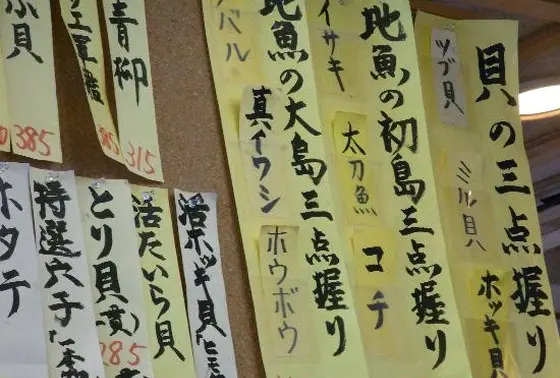 貝の三点握り
ツブ貝
ミル貝
ホッキ貝
地魚の初島三点握り
イサキ
太刀魚
コチ
地魚の大島三点握り
メバル
真イワシ
ホウボウ
青柳
315
385
赤貝
385
活ホッキ貝
活たいら貝
とり貝(一貫)
285
特選穴子(一本
ホタテ